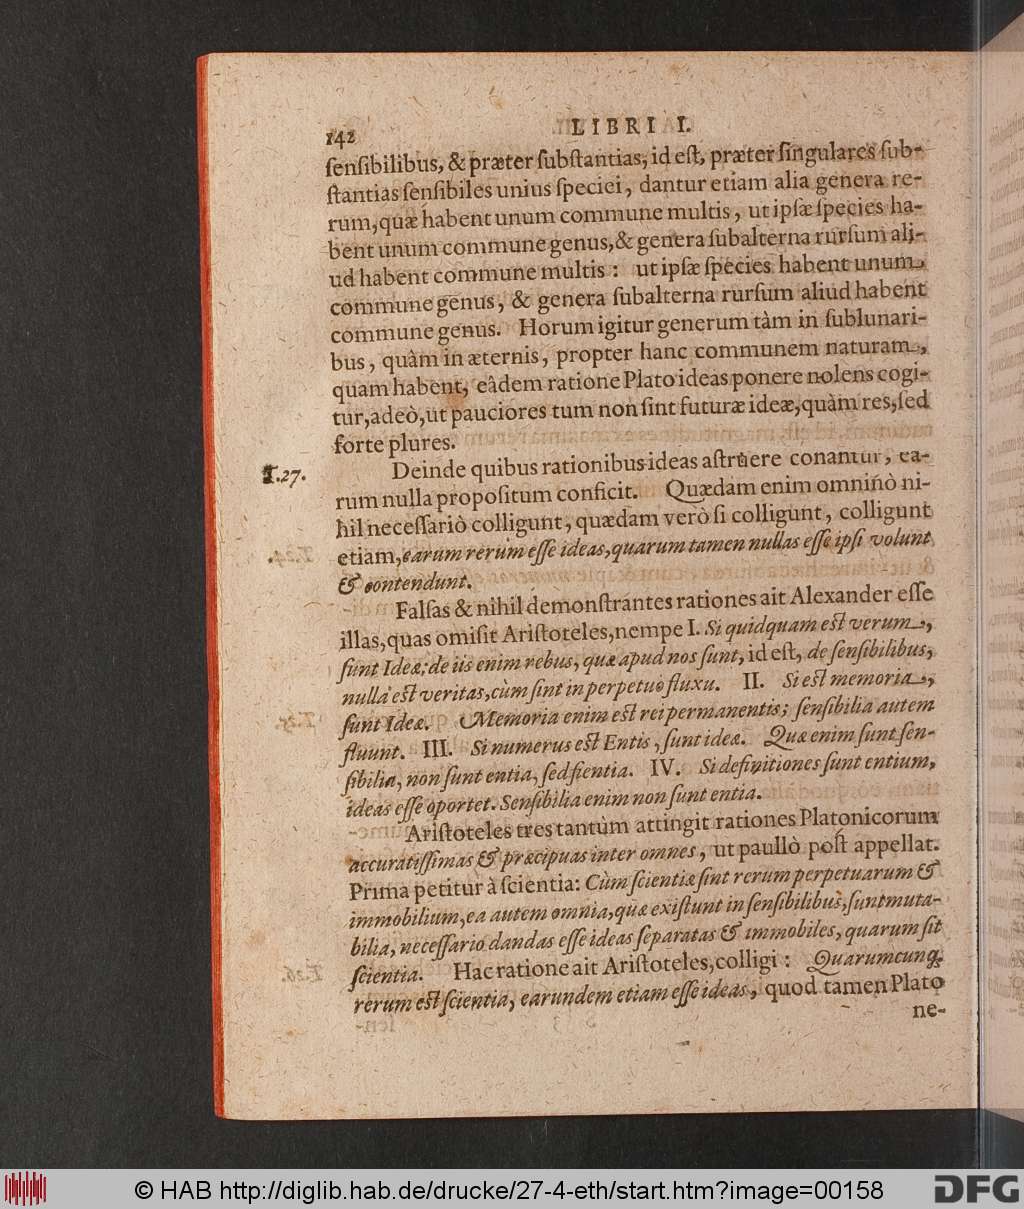 142 LIBRI I.
ſenſibilibus, & præter ſubſtantias, id eſt, præter ſingulares ſub-
ſtantias ſenſibiles unius ſpeciei, dantur etiam alia genera re-
rum, quæ habent unum commune multis, ut ipſæ ſpecies ha-
bent unum commune genus, & genera ſubalterna rurſum ali-
ud habent commune multis: ut ipſæ ſpecies habent unum
commune genus, & genera ſubalterna rurſum aliud habent
commune genus. Horum igitur generum tàm in ſublunari-
bus, quàm in æternis, propter hanc communem naturam,
quam habent, eâdem ratione Plato ideas ponere nolens cogi-
tur, adeò, ut pauciores tum non ſint futuræ ideæ, quàm res, ſed
forte plures.
T.27. Deinde quibus rationibus ideas aſtruere conantur, ea-
rum nulla propoſitum conficit. Quædam enim omninò ni-
hil neceſſariò colligunt, quædam verò ſi colligunt, colligunt
etiam, earum rerum eſſe ideas, quarum tamen nullas eſſe ipſi volunt
& contendunt.
Falſas & nihil demonſtrantes rationes ait Alexander eſſe
illas, quas omiſit Ariſtoteles, nempe I. Si quidquam eſt verum,
ſunt Ideæ; de iis enim rebus, quæ apud nos ſunt, id eſt, de ſenſibilibus,
nulla eſt veritas, cùm ſint in perpetuo fluxu. II. Si eſt memoria,
ſunt Ideæ. Memoria enim eſt rei permanentis; ſenſibilia autem
fluunt. III. Si numerus eſt Entis, ſunt ideæ. Quæ enim ſunt ſen-
ſibilia, non ſunt entia, ſed fientia. IV. Si definitiones ſunt entium,
ideas eſſe oportet. Senſibilia enim non ſunt entia.
Ariſtoteles tres tantùm attingit rationes Platonicorum
accuratiſſimas & præcipuas inter omnes, ut paullò poſt appellat.
Prima petitur à ſcientia: Cùm ſcientiæ ſint rerum perpetuarum &
immobilium, ea autem omnia, quæ exiſtunt in ſenſibilibus, ſunt muta-
bilia, neceſſario dandas eſſe ideas ſeparatas & immobiles, quarum ſit
ſcientia. Hac ratione ait Ariſtoteles, colligi: Quarumcunq;
rerum eſt ſcientia, earundem etiam eſſe ideas, quod tamen Plato
ne-
© HAB http://diglib.hab.de/drucke/27-4-eth/start.htm?image=00158
DFG